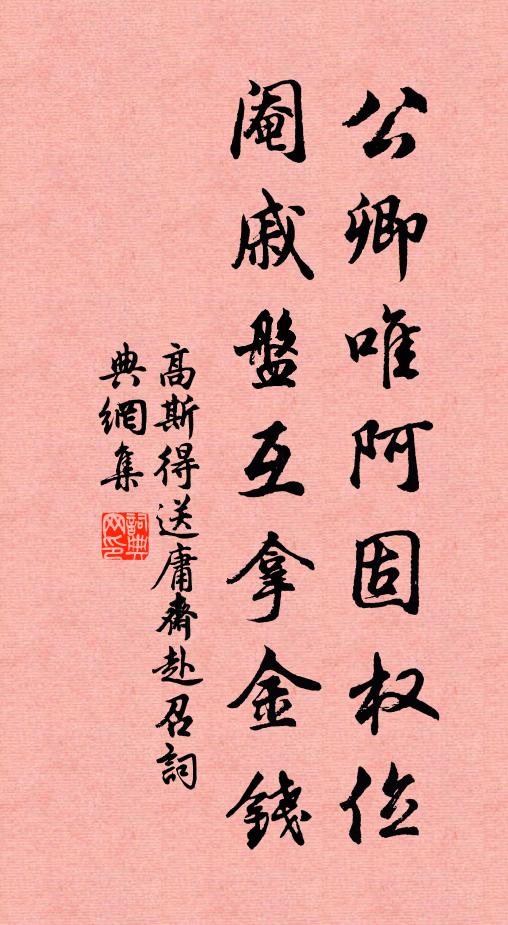 公卿唯阿固权位
阉戚盤互拿金錢
高斯得送庸齋赴召詞
典網集
詞典網印